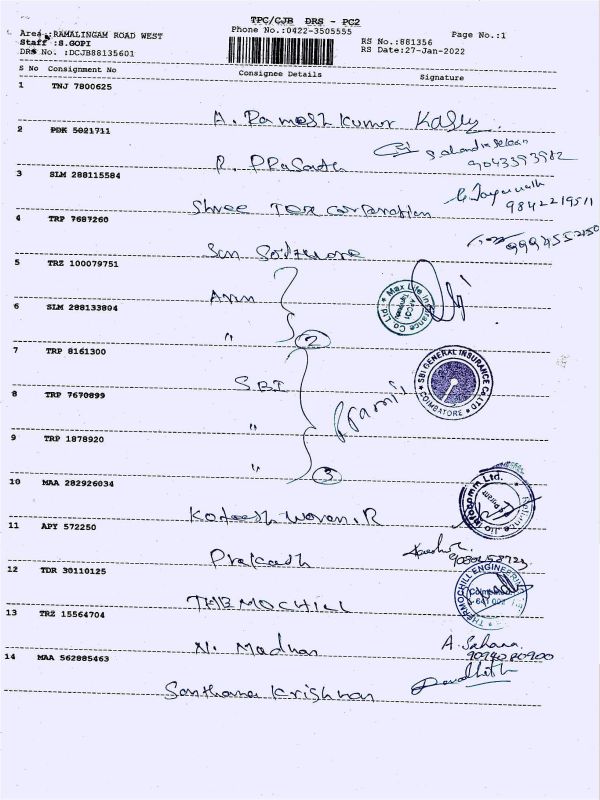 TPC/CJB DRS - PC2
Phone No.:0422-3505555
Page No.:1
Area :RAMALINGAM ROAD WEST
Staff :S.GOPI
DRS No. :DCJB88135601
RS No.:881356
RS Date:27-Jan-2022
S No Consignment No Consignee Details Signature
1 TNJ 7800625
A. Ramesh Kumar
2 PDK 5021711
R. PRasath
9043393982
3 SLM 288115584
Shree Tex Corporation
9842219511
4 TRP 7687260
San Software
9994552150
5 TRZ 100079751
Ann
Max Life Insurance Co Ltd
6 SLM 288133894
"
2
7 TRP 8161300
SBI
SBI GENERAL INSURANCE CO LTD
COIMBATORE
8 TRP 7670899
"
9 TRP 1878920
"
3
10 MAA 282926034
Koteesh Woven.R
Reliance Jio Infocomm Ltd.
11 APY 572250
Prakash
12 TDR 30110125
THEMOCHILL
THERMOCHILL ENGINEERING
13 TRZ 15564704
N. Madhan
A. Sahana
9094020900
14 MAA 562885463
Santhana Krishnan